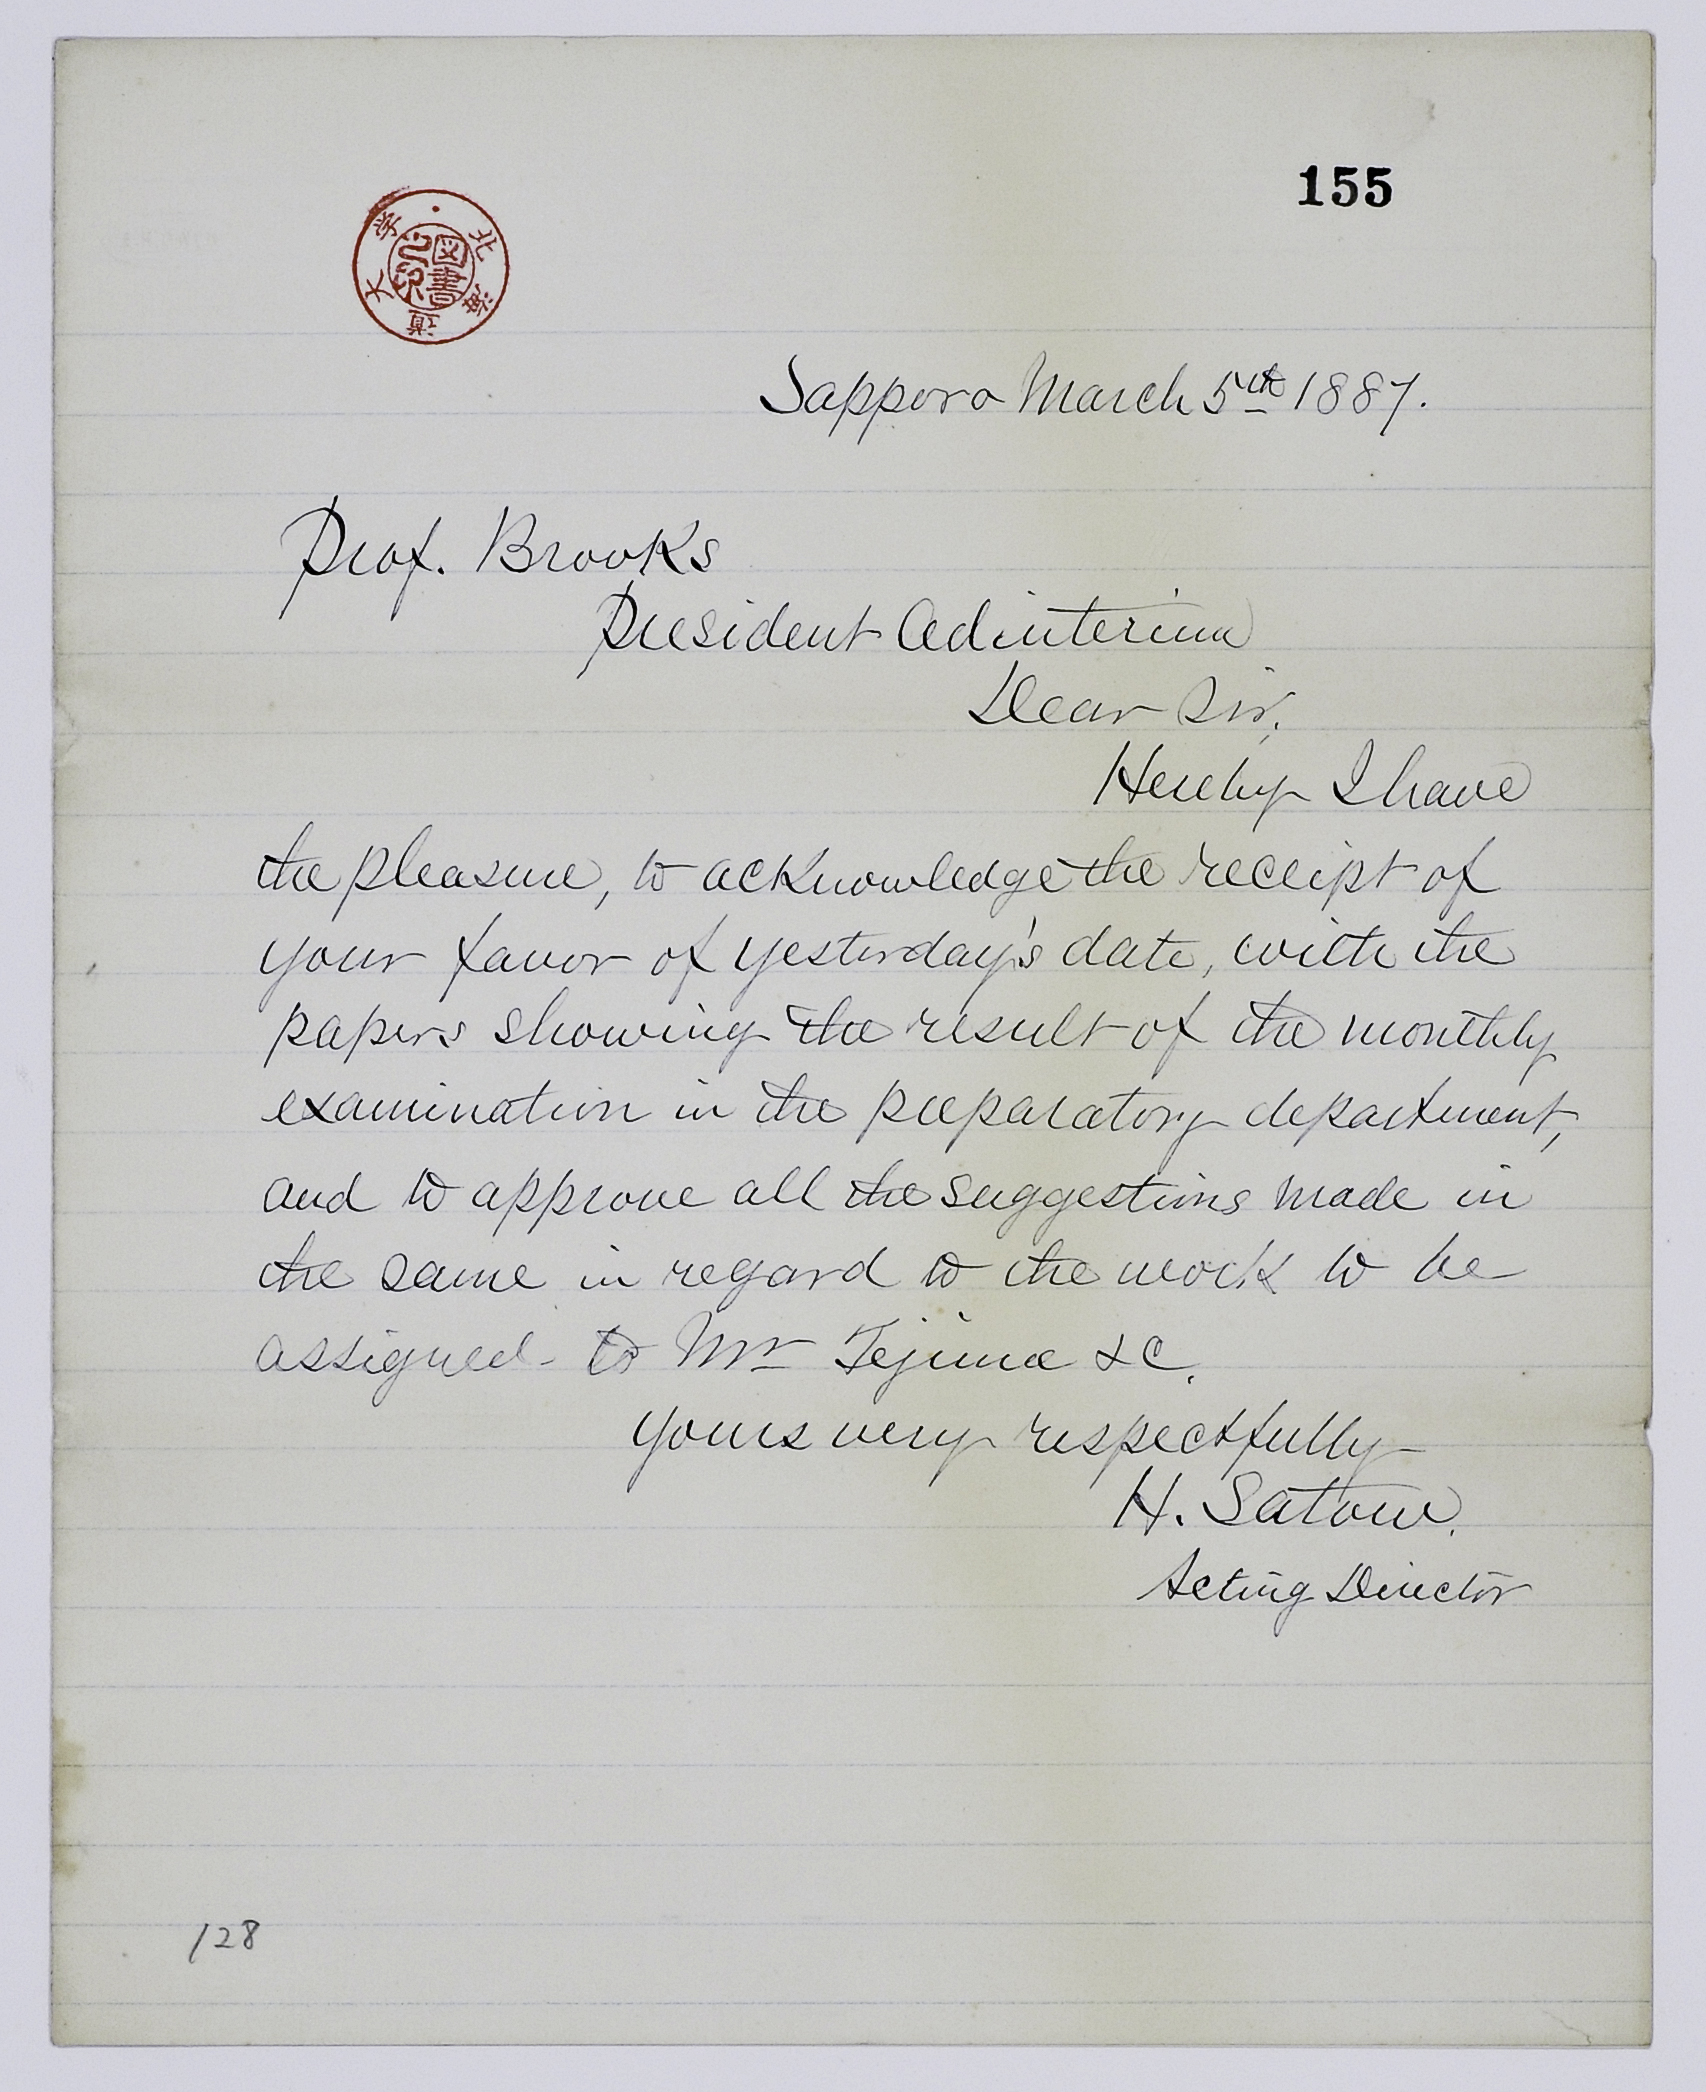 155
北海道大学
図書之印
Sapporo March 5th 1887.
Prof. Brooks
President Ad interim
Dear Sir,
Hereby I have
the pleasure, to acknowledge the receipt of
your favor of yesterday's date, with the
papers showing the result of the monthly
examination in the preparatory department,
and to approve all the suggestions made in
the same in regard to the work to be
assigned to Mr Tejima &c.
Yours very respectfully
H. Satow.
Acting Director
128